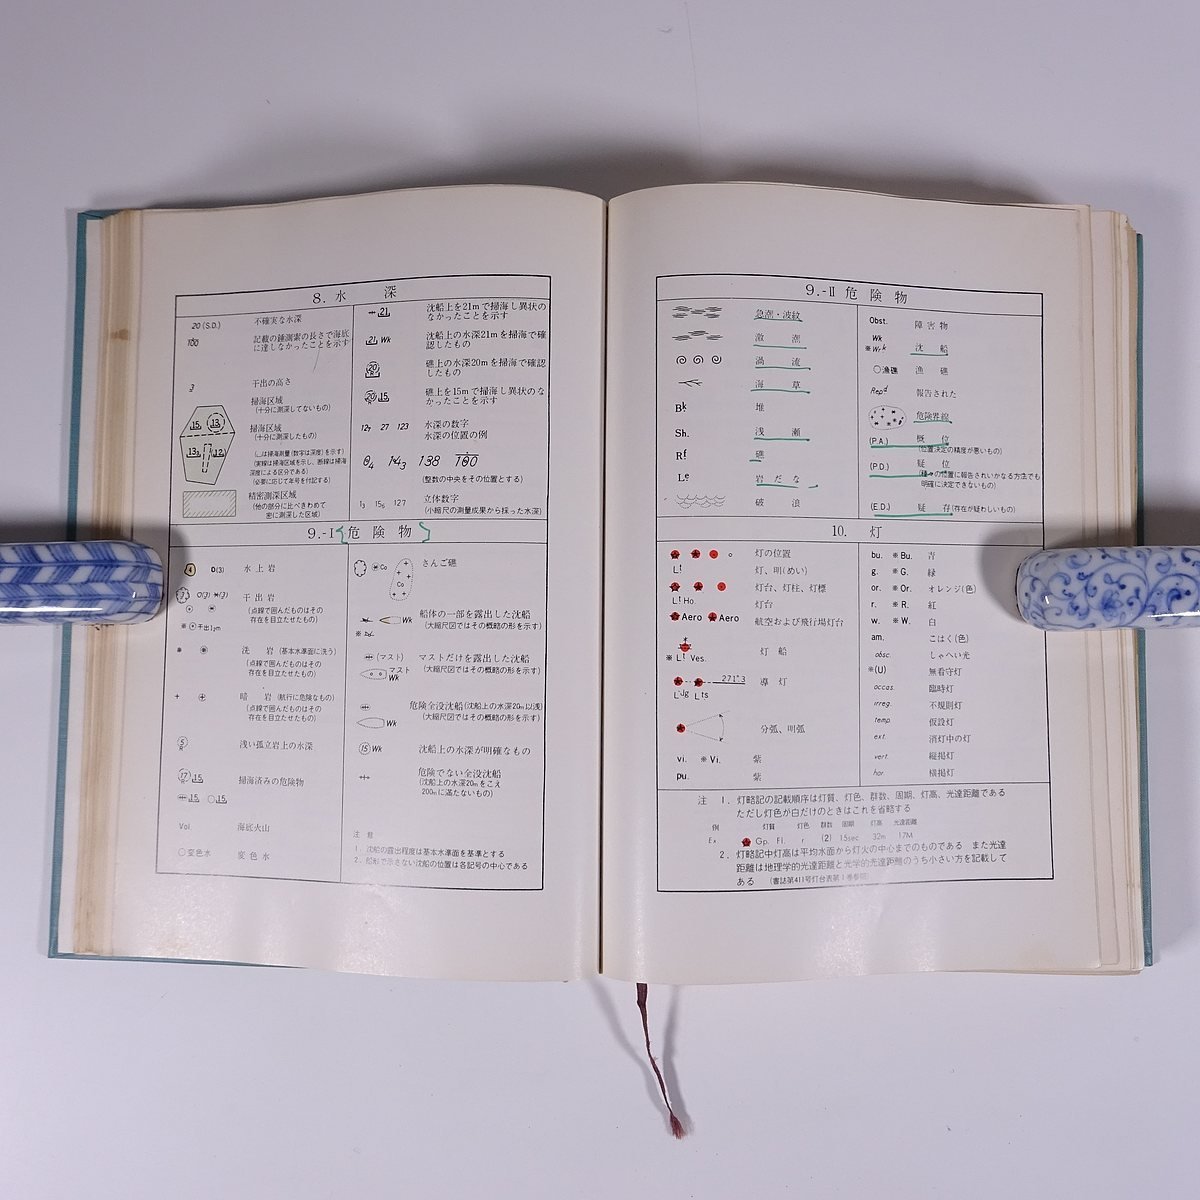 8. 水 深
20 (S.D.) 不確実な水深
100 記載の錘測索の長さで海底
に達しなかったことを示す
3 干出の高さ
掃海区域
(十分に測深してないもの)
掃海区域
(十分に測深したもの)
(⎵は掃海測量(数字は深度)を示す)
(実線は掃海区域を示し、断線は掃海
深度による区分である)
(必要に応じて年号を付記する)
精密測深区域
(他の部分に比べきわめて
密に測深した区域)
21 沈船上を21mで掃海し異状の
なかったことを示す
21 Wk 沈船上の水深21mを掃海で確
認したもの
20 R 礁上の水深20mを掃海で確認
したもの
20 R 15 礁上を15mで掃海し異状のな
かったことを示す
12₇ 27 123 水深の数字
水深の位置の例
0₄ 14₃ 138 100
(整数の中央をその位置とする)
1₃ 15₆ 127 立体数字
(小縮尺の測量成果から採った水深)
9.-I 危 険 物
4 0(3) 水 上 岩
0(3) *(3) 干 出 岩
(点線で囲んだものはその
存在を目立たせたもの)
※ 干出1₂m
洗 岩 (基本水準面に洗う)
(点線で囲んだものはその
存在を目立たせたもの)
+ 暗 岩 (航行に危険なもの)
(点線で囲んだものはその
存在を目立たせたもの)
5 R 浅い孤立岩上の水深
17 R 15 掃海済みの危険物
15 15
Vol. 海底火山
○変色水 変 色 水
Co Co さんご礁
Wk 船体の一部を露出した沈船
(大縮尺図ではその概略の形を示す)
(マスト) マストだけを露出した沈船
マスト Wk (大縮尺図ではその概略の形を示す)
危険全没沈船(沈船上の水深20m以浅)
Wk (大縮尺図ではその概略の形を示す)
15 Wk 沈船上の水深が明確なもの
危険でない全没沈船
(沈船上の水深20mをこえ
200mに満たないもの)
注 意
1. 沈船の露出程度は基本水準面を基準とする
2. 船形で示さない沈船の位置は各記号の中心である
9.-II 危 険 物
急潮・波紋
激 潮
渦 流
海 草
Bk 堆
Sh. 浅 瀬
Rf 礁
Le 岩 だ な
破 浪
Obst. 障 害 物
Wk
※Wrk 沈 船
○漁礁 漁 礁
Repd 報告された
危険界線
(P.A.) 概 位
(位置決定の精度が悪いもの)
(P.D.) 疑 位
の位置に報告されいかなる方法でも
明確に決定できないもの)
(E.D.) 疑 存 (存在が疑わしいもの)
10. 灯
灯の位置
Lt 灯、明(めい)
灯台、灯柱、灯標
Lt Ho. 灯台
Aero Aero 航空および飛行場灯台
※ Lt Ves. 灯 船
271°.3 導 灯
Ldg Lts
分弧、明弧
vi. ※Vi. 紫
pu. 紫
bu. ※Bu. 青
g. ※G. 緑
or. ※Or. オレンジ(色)
r. ※R. 紅
w. ※W. 白
am. こはく(色)
obsc. しゃへい光
※(U) 無看守灯
occas. 臨時灯
irreg. 不規則灯
temp. 仮設灯
ext. 消灯中の灯
vert. 縦掲灯
hor. 横掲灯
注 1. 灯略記の記載順序は灯質、灯色、群数、周期、灯高、光達距離である
ただし灯色が白だけのときはこれを省略する
例 灯質 灯色 群数 周期 灯高 光達距離
Ex. Gp. Fl. r (2) 15sec 32m 17M
2. 灯略記中灯高は平均水面から灯火の中心までのものである また光達
距離は地理学的光達距離と光学的光達距離のうち小さい方を記載して
ある (書誌第411号灯台表第1巻参照)